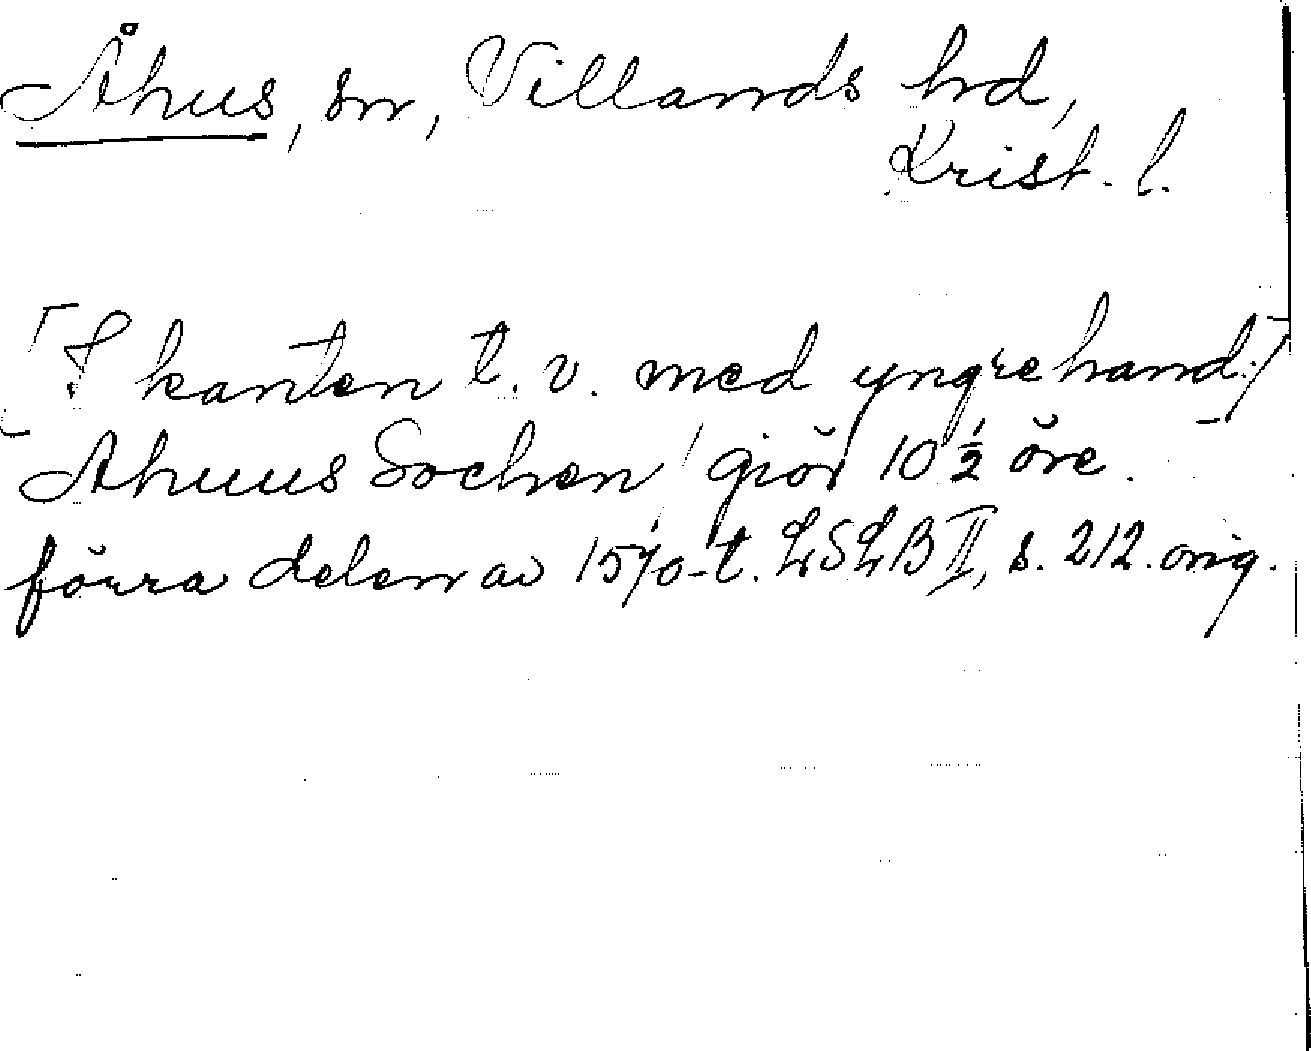 Åhus, sn, Villands hd,
Krist. l.
[I kanten t. v. med yngre hand:]
Ahuus Sochen / giör 10 1/2 öre.
förra delen av 1570-t. LSLB II, s. 212. orig.